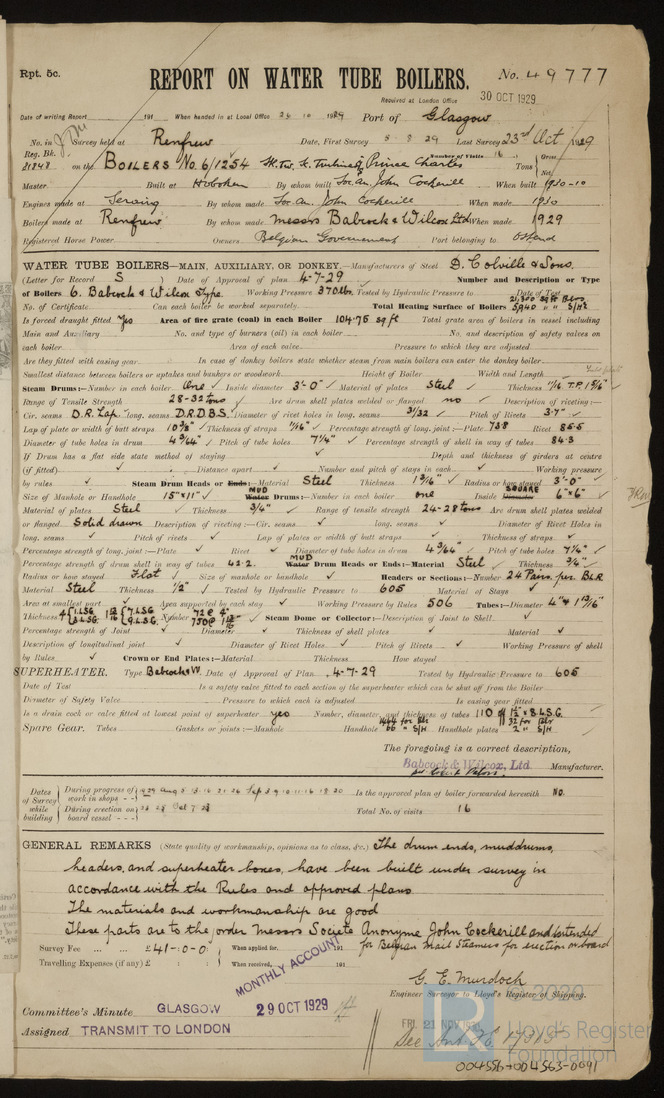 Rpt. 5c.
REPORT ON WATER TUBE BOILERS. No. 49777
Required at London Office 30 OCT 1929
Date of writing Report 191 When handed in at Local Office 26 10 1929 Port of Glasgow
No. in Survey held at Renfrew Date, First Survey 5 8 29 Last Survey 23rd Oct 1929
Reg. Bk. Number of Visits 16
on the BOILERS No. 6/1254 Prince Charles Tons Gross Net
Master Built at Hoboken By whom built Soc. An. John Cockerill When built 1930-10
Engines made at Seraing By whom made Soc. An. John Cockerill When made 1930
Boilers made at Renfrew By whom made Messrs Babcock & Wilcox Ltd When made 1929
Registered Horse Power Owners Belgian Government Port belonging to Ostend
WATER TUBE BOILERS—MAIN, AUXILIARY, OR DONKEY.—Manufacturers of Steel D. Colville & Sons.
(Letter for Record S ) Date of Approval of plan 4-7-29 Number and Description or Type
of Boilers 6. Babcock & Wilcox Type. Working Pressure 370 lbs. Tested by Hydraulic Pressure to Date of Test
No. of Certificate Can each boiler be worked separately. Total Heating Surface of Boilers 21,300 sq ft Blrs 5940 " " S/Ht
Is forced draught fitted Yes Area of fire grate (coal) in each Boiler 104.75 sq ft Total grate area of boilers in vessel including
Main and Auxiliary No. and type of burners (oil) in each boiler No. and description of safety valves on
each boiler Area of each valve Pressure to which they are adjusted
Are they fitted with easing gear In case of donkey boilers state whether steam from main boilers can enter the donkey boiler
Smallest distance between boilers or uptakes and bunkers or woodwork Height of Boiler Width and Length
Steam Drums:—Number in each boiler One Inside diameter 3'-0" Material of plates Steel Thickness 1/16 T.P. 1 3/16"
Range of Tensile Strength 28-32 tons Are drum shell plates welded or flanged no Description of riveting:—
Cir. seams D.R. Lap. long. seams D.R.D.B.S. Diameter of rivet holes in long. seams 3/32 Pitch of Rivets 3.7"
Lap of plate or width of butt straps 10 3/8" Thickness of straps 11/16" Percentage strength of long. joint:—Plate 73.8 Rivet 85.5
Diameter of tube holes in drum 4 3/64" Pitch of tube holes 7 1/4" Percentage strength of shell in way of tubes 84.3
If Drum has a flat side state method of staying Depth and thickness of girders at centre
(if fitted) Distance apart Number and pitch of stays in each Working pressure
by rules Steam Drum Heads or Ends:—Material Steel Thickness 1 3/16" Radius or how stayed 3'-0"
Size of Manhole or Handhole 15"×11" MUD Water Drums:—Number in each boiler one Inside SQUARE Diameter 6"×6"
Material of plates Steel Thickness 3/4" Range of tensile strength 24-28 tons Are drum shell plates welded
or flanged Solid drawn Description of riveting:—Cir. seams long. seams Diameter of Rivet Holes in
long. seams Pitch of rivets Lap of plates or width of butt straps Thickness of straps
Percentage strength of long. joint:—Plate Rivet Diameter of tube holes in drum 4 3/64" Pitch of tube holes 7 1/4"
Percentage strength of drum shell in way of tubes 42.2. MUD Water Drum Heads or Ends:—Material Steel Thickness 3/4"
Radius or how stayed Flat Size of manhole or handhole Headers or Sections:—Number 24 Pairs. per. BLR
Material Steel Thickness 1/2" Tested by Hydraulic Pressure to 605 Material of Stays
Area at smallest part Area supported by each stay Working Pressure by Rules 506 Tubes:—Diameter 4" & 1 13/16"
Thickness Number 72 @ 4" Steam Dome or Collector:—Description of Joint to Shell
Percentage strength of Joint Diameter Thickness of shell plates Material
Description of longitudinal joint Diameter of Rivet Holes Pitch of Rivets Working Pressure of shell
by Rules Crown or End Plates:—Material Thickness How stayed
SUPERHEATER. Type Babcock & W. Date of Approval of Plan 4-7-29 Tested by Hydraulic Pressure to 605
Date of Test Is a safety valve fitted to each section of the superheater which can be shut off from the Boiler
Diameter of Safety Valve Pressure to which each is adjusted Is easing gear fitted
Is a drain cock or valve fitted at lowest point of superheater yes Number, diameter, and thickness of tubes 110 of 1 1/2" × 8 L.S.G.
Spare Gear. Tubes Gaskets or joints:—Manhole Handhole Handhole plates
The foregoing is a correct description,
Babcock & Wilcox, Ltd. Manufacturer.
Dates of Survey while building
During progress of work in shops - - 1929 Aug 5 13 16 21 26 Sep 3 9 10 11 16 18 20 Is the approved plan of boiler forwarded herewith No.
During erection on board vessel - - - Oct Total No. of visits 16
GENERAL REMARKS (State quality of workmanship, opinions as to class, &c.) The drum ends, muddrums,
headers, and superheater boxes, have been built under survey in
accordance with the Rules and approved plans
The materials and workmanship are good
These parts are to the order Messrs Societe Anonyme John Cockerill and intended
for Belgian Mail Steamers for erection onboard
Survey Fee ... ... £ 41-0-0 When applied for, 191
Travelling Expenses (if any) £ : : When received, 191
MONTHLY ACCOUNT
G. E. Murdoch
Engineer Surveyor to Lloyd's Register of Shipping.
Committee's Minute GLASGOW 29 OCT 1929
Assigned TRANSMIT TO LONDON
FRI. 21 NOV 1930
© 2020
Lloyd's Register
Foundation
004556-004563-0091